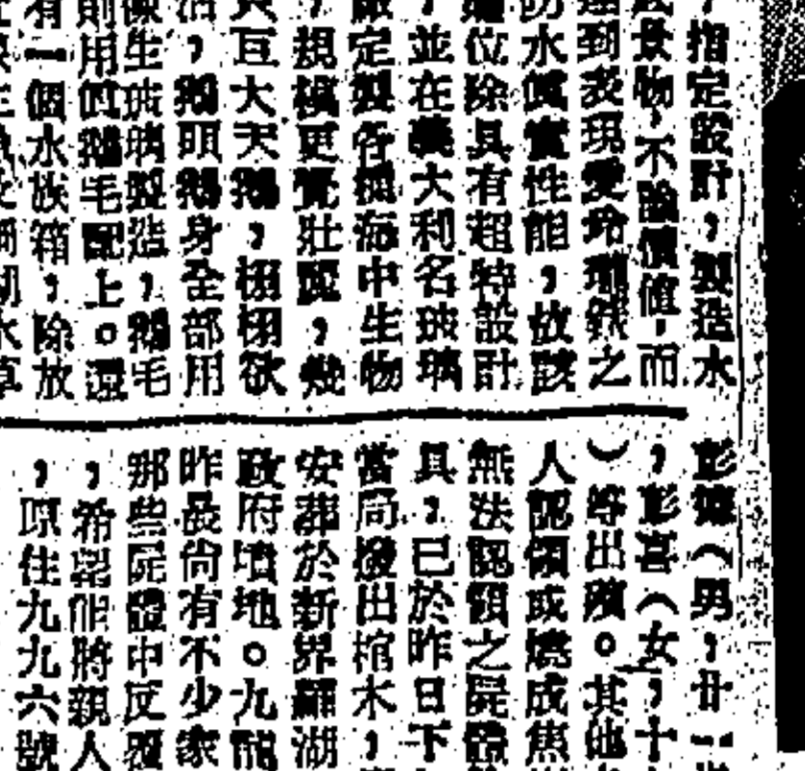 ，指定設計，製造水
景物，不論價值，而
達到表現愛玲瓏銳之
防水真實性能，故該
位除具有超特設計
，並在義大利名玻璃
定製各種海中生物
，規模更覺壯麗，幾
巨大天鵝，栩栩欲
活，鵝頭鵝身全部用
像生玻璃製造，鵝毛
則用真鵝毛配上。還
有一個水族箱，除放
水草
彭嫌（男，廿一
，彭喜（女，十
）等出殯。其他
人認領或燒成焦
無法認領之屍體
具，已於昨日下
當局撥出棺木，
安葬於新界羅湖
政府墳地。九龍
昨晨尚有不少家
那些屍體中反覆
，希望能將親人
，原住九九六號